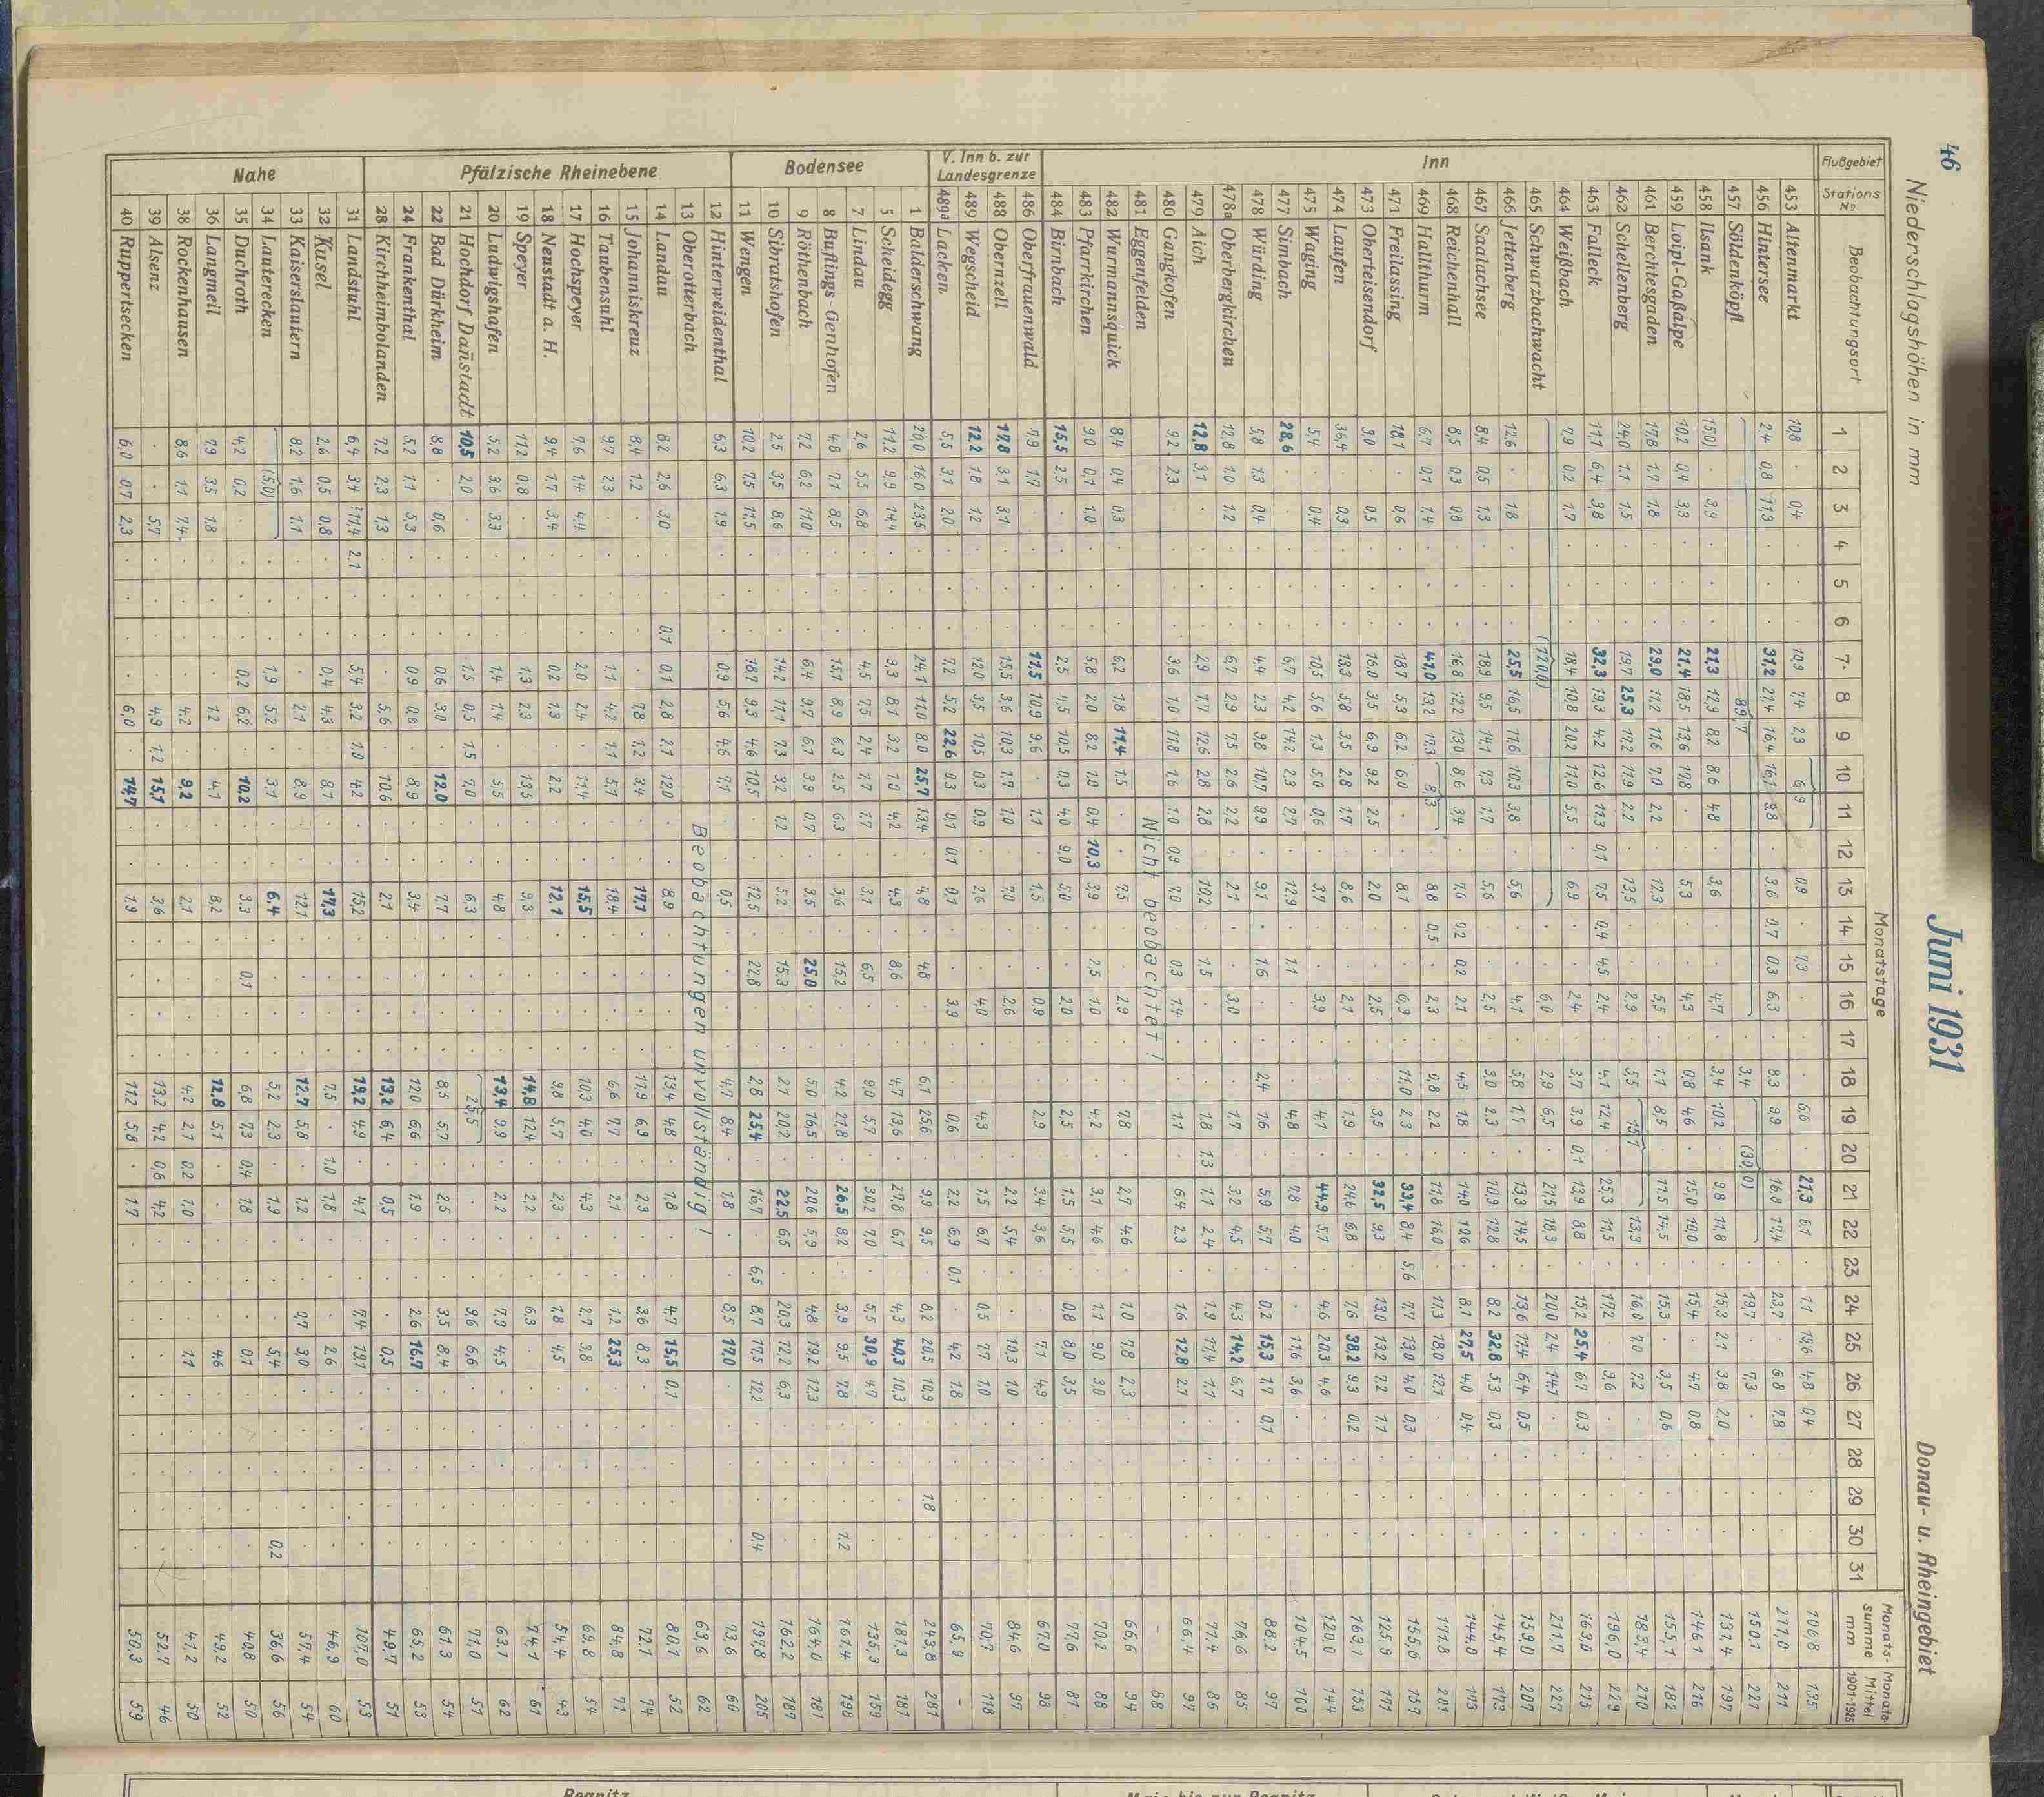 46 Niederschlagshöhen in mm Juni 1931 Donau- u. Rheingebiet
Flußgebiet Stations № Beobachtungsort Monatstage Monats-summe mm Monats-Mittel 1901-1925
1 2 3 4 5 6 7 8 9 10 11 12 13 14 15 16 17 18 19 20 21 22 23 24 25 26 27 28 29 30 31
Inn
453 Altenmarkt 10,8 0,4 10,9 7,4 2,3 6,9 0,9 7,3 6,6 21,3 6,1 1,1 19,6 4,8 0,4 106,8 135
456 Hintersee 2,4 0,8 11,3 31,2 21,4 16,4 16,1 9,8 3,6 0,7 0,3 6,3 8,3 9,9 16,8 17,4 23,7 6,8 7,8 211,0 211
457 Söldenköpfl 89,7 3,4 (30,0) 19,7 7,3 150,1 221
458 Ilsank (5,0) 3,9 21,3 12,9 8,2 8,6 4,8 3,6 4,7 3,4 10,2 9,8 11,8 15,3 2,1 3,8 2,0 131,4 197
459 Loipl-Gaßalpe 10,2 0,4 3,3 21,4 18,5 13,6 17,8 5,3 4,3 0,8 4,6 15,0 10,0 15,4 4,7 0,8 146,1 216
461 Berchtesgaden 17,8 1,7 1,8 29,0 11,2 11,6 7,0 2,2 12,3 5,5 1,1 8,5 11,5 14,5 15,3 3,5 0,6 155,1 182
462 Schellenberg 24,0 1,1 1,5 19,7 25,3 17,2 11,9 2,2 13,5 2,9 5,5 15,1 13,3 16,0 7,0 7,2 183,4 210
463 Falleck 11,1 6,4 3,8 32,3 19,3 4,2 12,6 11,3 0,1 7,5 0,4 4,5 2,4 4,1 12,4 25,3 11,5 17,2 9,6 196,0 229
464 Weißbach 7,9 0,2 1,7 18,4 10,8 20,2 11,0 5,5 6,9 2,4 3,7 3,9 0,1 13,9 8,8 15,2 25,4 6,7 0,3 163,0 215
465 Schwarzbachwacht (120,0) 6,0 2,9 6,5 21,5 18,3 20,0 2,4 14,1 211,7 227
466 Jettenberg 12,6 1,8 25,5 16,5 11,6 10,3 3,8 5,6 4,1 5,8 1,1 13,3 14,5 13,6 17,4 6,4 0,5 159,0 207
467 Saalachsee 8,4 0,5 1,3 18,9 9,5 14,1 7,3 1,7 5,6 2,5 3,0 2,3 10,9 12,8 8,2 32,8 5,3 0,3 145,4 173
468 Reichenhall 8,5 0,3 0,8 16,8 12,2 13,0 8,6 3,4 7,0 0,2 0,2 2,1 4,5 1,8 14,0 10,6 8,1 27,5 4,0 0,4 144,0 173
469 Hallthurm 6,7 0,1 1,4 47,0 13,2 17,3 8,3 8,8 0,5 2,3 0,8 2,2 11,8 16,0 11,3 18,0 12,1 171,8 201
471 Freilassing 18,1 0,6 18,7 5,3 6,2 6,0 8,1 6,9 11,0 2,3 33,4 8,4 5,6 7,7 13,0 4,0 0,3 155,6 157
473 Oberteisendorf 3,0 0,5 16,0 3,5 6,9 9,2 2,5 2,0 2,5 3,5 32,5 9,3 13,0 13,2 7,2 1,1 125,9 171
474 Laufen 36,4 0,3 13,3 5,8 3,5 2,8 1,7 8,6 2,1 1,9 24,6 6,8 7,6 38,2 9,3 0,2 163,1 153
475 Waging 5,4 0,4 10,5 5,6 1,3 5,0 0,6 3,7 3,9 4,1 44,9 5,1 4,6 20,3 4,6 120,0 144
477 Simbach 28,6 6,7 4,2 14,2 2,3 2,7 12,9 1,1 4,8 7,8 4,0 11,6 3,6 104,5 100
478 Würding 5,8 1,3 0,4 4,4 2,3 9,8 10,7 9,9 9,1 1,6 2,4 1,6 5,9 5,7 0,2 15,3 1,7 0,1 88,2 97
478a Oberbergkirchen 12,8 1,0 1,2 6,7 2,9 7,5 2,6 2,2 2,1 3,0 1,7 3,2 4,5 4,3 14,2 6,7 76,6 85
479 Aich 12,8 3,1 2,9 1,7 12,6 2,8 2,8 10,2 1,5 1,8 1,3 1,1 2,4 1,9 11,4 1,1 71,4 86
480 Gangkofen 9,2 2,3 3,6 1,0 11,8 1,6 1,0 0,9 7,0 0,3 1,4 1,1 6,4 2,3 1,6 12,8 2,1 66,4 97
481 Eggenfelden Nicht beobachtet ! - 88
482 Wurmannsquick 8,4 0,4 0,3 6,2 1,8 11,4 1,5 7,5 2,9 7,8 2,7 4,6 1,0 7,8 2,3 66,6 94
483 Pfarrkirchen 9,0 0,1 1,0 5,8 2,0 8,2 1,0 0,4 10,3 3,9 2,5 1,0 4,2 3,1 4,6 1,1 9,0 3,0 70,2 88
484 Birnbach 15,5 2,5 2,5 4,5 10,5 0,3 4,0 9,0 5,0 2,0 2,5 1,5 5,5 0,8 8,0 3,5 77,6 87
V. Inn b. zur Landesgrenze
486 Oberfrauenwald 7,9 1,7 11,5 10,9 9,6 1,1 1,5 0,9 2,9 3,4 3,6 7,1 4,9 67,0 98
488 Obernzell 17,8 3,1 3,1 15,5 3,6 10,3 1,7 1,0 7,0 2,6 2,2 5,4 10,3 1,0 84,6 97
489 Wegscheid 12,2 1,8 1,2 12,0 3,5 10,5 0,3 0,9 2,6 4,0 4,3 1,5 6,7 0,5 7,7 1,0 70,7 118
489a Lacken 5,5 3,1 2,0 7,2 5,2 22,6 0,3 0,1 0,1 0,1 3,9 0,6 2,2 6,9 0,1 4,2 1,8 65,9 -
Bodensee
1 Balderschwang 20,0 16,0 23,5 24,1 11,0 8,0 25,7 13,4 4,8 4,8 6,1 25,6 9,9 9,5 8,2 20,5 10,9 1,8 243,8 281
5 Scheidegg 11,2 9,9 14,4 9,3 8,1 3,2 1,0 4,2 4,3 8,6 4,7 13,6 27,8 6,1 4,3 40,3 10,3 181,3 181
7 Lindau 2,6 5,5 6,8 4,5 7,5 2,4 1,7 1,7 3,1 6,5 9,0 5,7 30,2 7,0 5,5 30,9 4,7 135,3 159
8 Buflings-Gernhofen 4,8 7,1 8,5 15,1 8,9 6,3 2,5 6,3 3,6 15,2 4,2 21,8 26,5 8,2 3,9 9,5 7,8 1,2 161,4 198
9 Röthenbach 7,2 6,2 11,0 6,4 9,7 6,7 3,9 0,7 3,5 25,0 5,0 16,5 20,6 5,9 4,8 19,2 12,3 164,0 181
10 Sibratshofen 2,5 3,5 8,6 14,2 11,1 7,3 3,2 1,2 5,2 15,3 2,1 20,2 22,5 6,5 20,3 12,2 6,3 162,2 189
11 Wengen 10,2 7,5 11,5 18,7 9,3 4,6 10,5 12,5 22,8 2,8 25,4 16,7 6,5 8,7 17,5 12,2 0,4 197,8 205
Pfälzische Rheinebene
12 Hinterweidenthal 6,3 6,3 1,9 0,9 5,6 4,6 7,1 0,5 4,7 8,4 1,8 8,5 17,0 73,6 60
13 Oberotterbach Beobachtungen unvollständig ! 63,6 62
14 Landau 8,2 2,6 3,0 0,1 0,1 2,8 2,7 12,0 8,9 13,4 4,8 1,8 4,7 15,5 0,1 80,1 52
15 Johanniskreuz 8,4 1,2 7,8 1,2 3,4 17,1 11,9 6,9 2,3 3,6 8,3 72,1 74
16 Taubensuhl 9,7 2,3 1,1 4,2 1,1 5,7 18,4 6,6 7,7 2,1 1,2 25,3 84,8 71
17 Hochspeyer 7,6 1,4 4,4 2,0 2,4 11,4 15,5 10,3 4,0 4,3 2,7 3,8 69,8 54
18 Neustadt a. H. 9,4 1,7 3,4 0,2 1,3 2,2 12,1 9,8 5,7 2,3 1,8 4,5 54,4 43
19 Speyer 11,2 0,8 1,3 2,3 13,5 9,3 14,8 12,4 2,2 6,3 74,1 61
20 Ludwigshafen 5,2 3,6 3,3 1,4 1,4 5,5 4,8 13,4 9,9 2,2 7,9 4,5 63,1 62
21 Hochdorf Dañstadt 10,5 2,0 1,5 0,5 1,5 7,0 6,3 25,5 9,6 6,6 71,0 51
22 Bad Dürkheim 8,8 0,6 0,6 3,0 12,0 7,7 8,5 5,7 2,5 3,5 8,4 61,3 54
24 Frankenthal 5,2 1,1 5,3 0,9 0,6 8,9 3,4 12,0 6,6 1,9 2,6 16,7 65,2 53
28 Kirchheimbolanden 7,2 2,3 1,3 5,6 10,6 2,1 13,2 6,4 0,5 0,5 49,7 51
Nahe
31 Landstuhl 6,4 3,4 ?11,4 2,1 5,4 3,2 1,0 4,2 15,2 19,2 4,9 4,1 7,4 19,1 107,0 53
32 Kusel 2,6 0,5 0,8 0,4 4,3 8,1 17,3 7,5 1,0 1,8 2,6 46,9 60
33 Kaiserslautern 8,2 1,6 1,1 2,1 8,9 12,1 12,7 5,8 1,2 0,7 3,0 57,4 54
34 Lauterecken (5,0) 1,9 5,2 3,1 6,4 5,2 2,3 1,9 5,4 0,2 36,6 56
35 Duchroth 4,2 0,2 0,2 6,2 10,2 3,3 0,1 6,8 7,3 0,4 1,8 0,1 40,8 50
36 Langmeil 7,9 3,5 1,8 1,2 4,1 8,2 12,8 5,1 4,6 49,2 52
38 Rockenhausen 8,6 1,1 7,4 4,2 9,2 2,1 4,2 2,1 0,2 1,0 1,1 41,2 50
39 Alsenz 5,7 4,9 1,2 15,1 3,6 13,2 4,2 0,6 4,2 52,7 46
40 Ruppertsecken 6,0 0,7 2,3 6,0 14,7 1,9 11,2 5,8 1,7 50,3 59